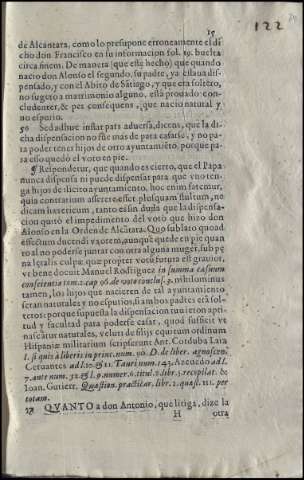 15
122
de Alcantara, como lo presupone erroneamente el di
cho don Francisco en su informacion fol. 19. buelta
circa finem. De manera (que este hecho) que quando
nacio don Alonso el segundo, su padre, ya estaua dis-
pensado, y con el Abito de Sãtiago, y que era soltero,
no sugeto a matrimonio alguno, està prouado con-
cludenter, & per consequens, que nacio natural y
no espurio.
50 Sed adhuc instar pars aduersa, dicens, que la di-
cha dispensacion no fue mas de para casarse, y no pa-
ra poder tener hijos de otro ayuntamiẽto, porque pa-
ra esso quedò el voto en pie.
¶ Respondetur, que quando es cierto, que el Papa
nunca dispensa ni puede dispensar para que vno ten-
ga hijos de ilicito ayuntamiento, hoc enim fatemur,
quia contrarium asserere esset plusquam stultum, ne
dicam hæreticum, tanto es sin duda que la dispensa-
cion quitò el impedimento del voto que hizo don
Alonso en la Orden de Alcãtara. Quo sublato quoad
effectum ducendi vxorem, aunque quede en pie quan
to al no poderse juntar con otra alguna muger, sub pœ
na lęthalis culpæ que propter votũ futura est grauior,
vt bene docuit Manuel Rodriguez in summa casuum
conscientia tom. 2. cap. 96. de voto conclus. 2. nihilominus
tamen, los hijos que nacieren de tal ayuntamiento
seran naturales y no espurios, si ambos padres erã sol-
teros: porque supuesta la dispensacion tuuieron apti-
tud y facultad para poderse casar, quod sufficit vt
nascãtur naturales, veluti de filijs equitum ordinum
Hispaniæ militarium scripserunt Ant. Corduba Lara
l. si quis à liberis in princ. num. 90. D. de liber. agnoscen.
Ceruantes ad l. 10. & 11. Tauri num. 143. Azeuedo ad l.
7. ante num. 32. & l. 9. numer. 6. titul. 2. libr. 5. recopilat. &
Ioan. Gutierr. Quæstion. practicar. libr. 2. quæst. 111. per
totam.
QVANTO a don Antonio, que litiga, dize la
H otra